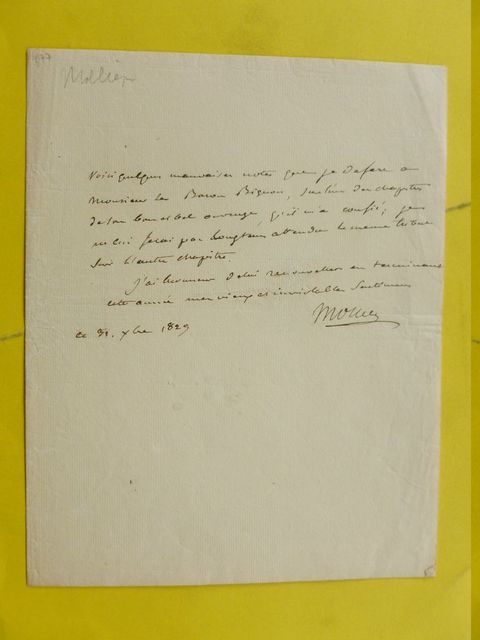 Mollien
Voici quelques mauvaises notes que je défere a
Monsieur le Baron Bignon, sur l'un des chapitres
de son bon et bel ouvrage, qu'il m'a confié; je
ne lui ferai pas longtems attendre le même tribut
sur l'autre chapitre.
J'ai l'honneur de lui renouveller en terminant
cette année mes vieux et inviolables sentimens
Mollien
ce 31. xbre 1829